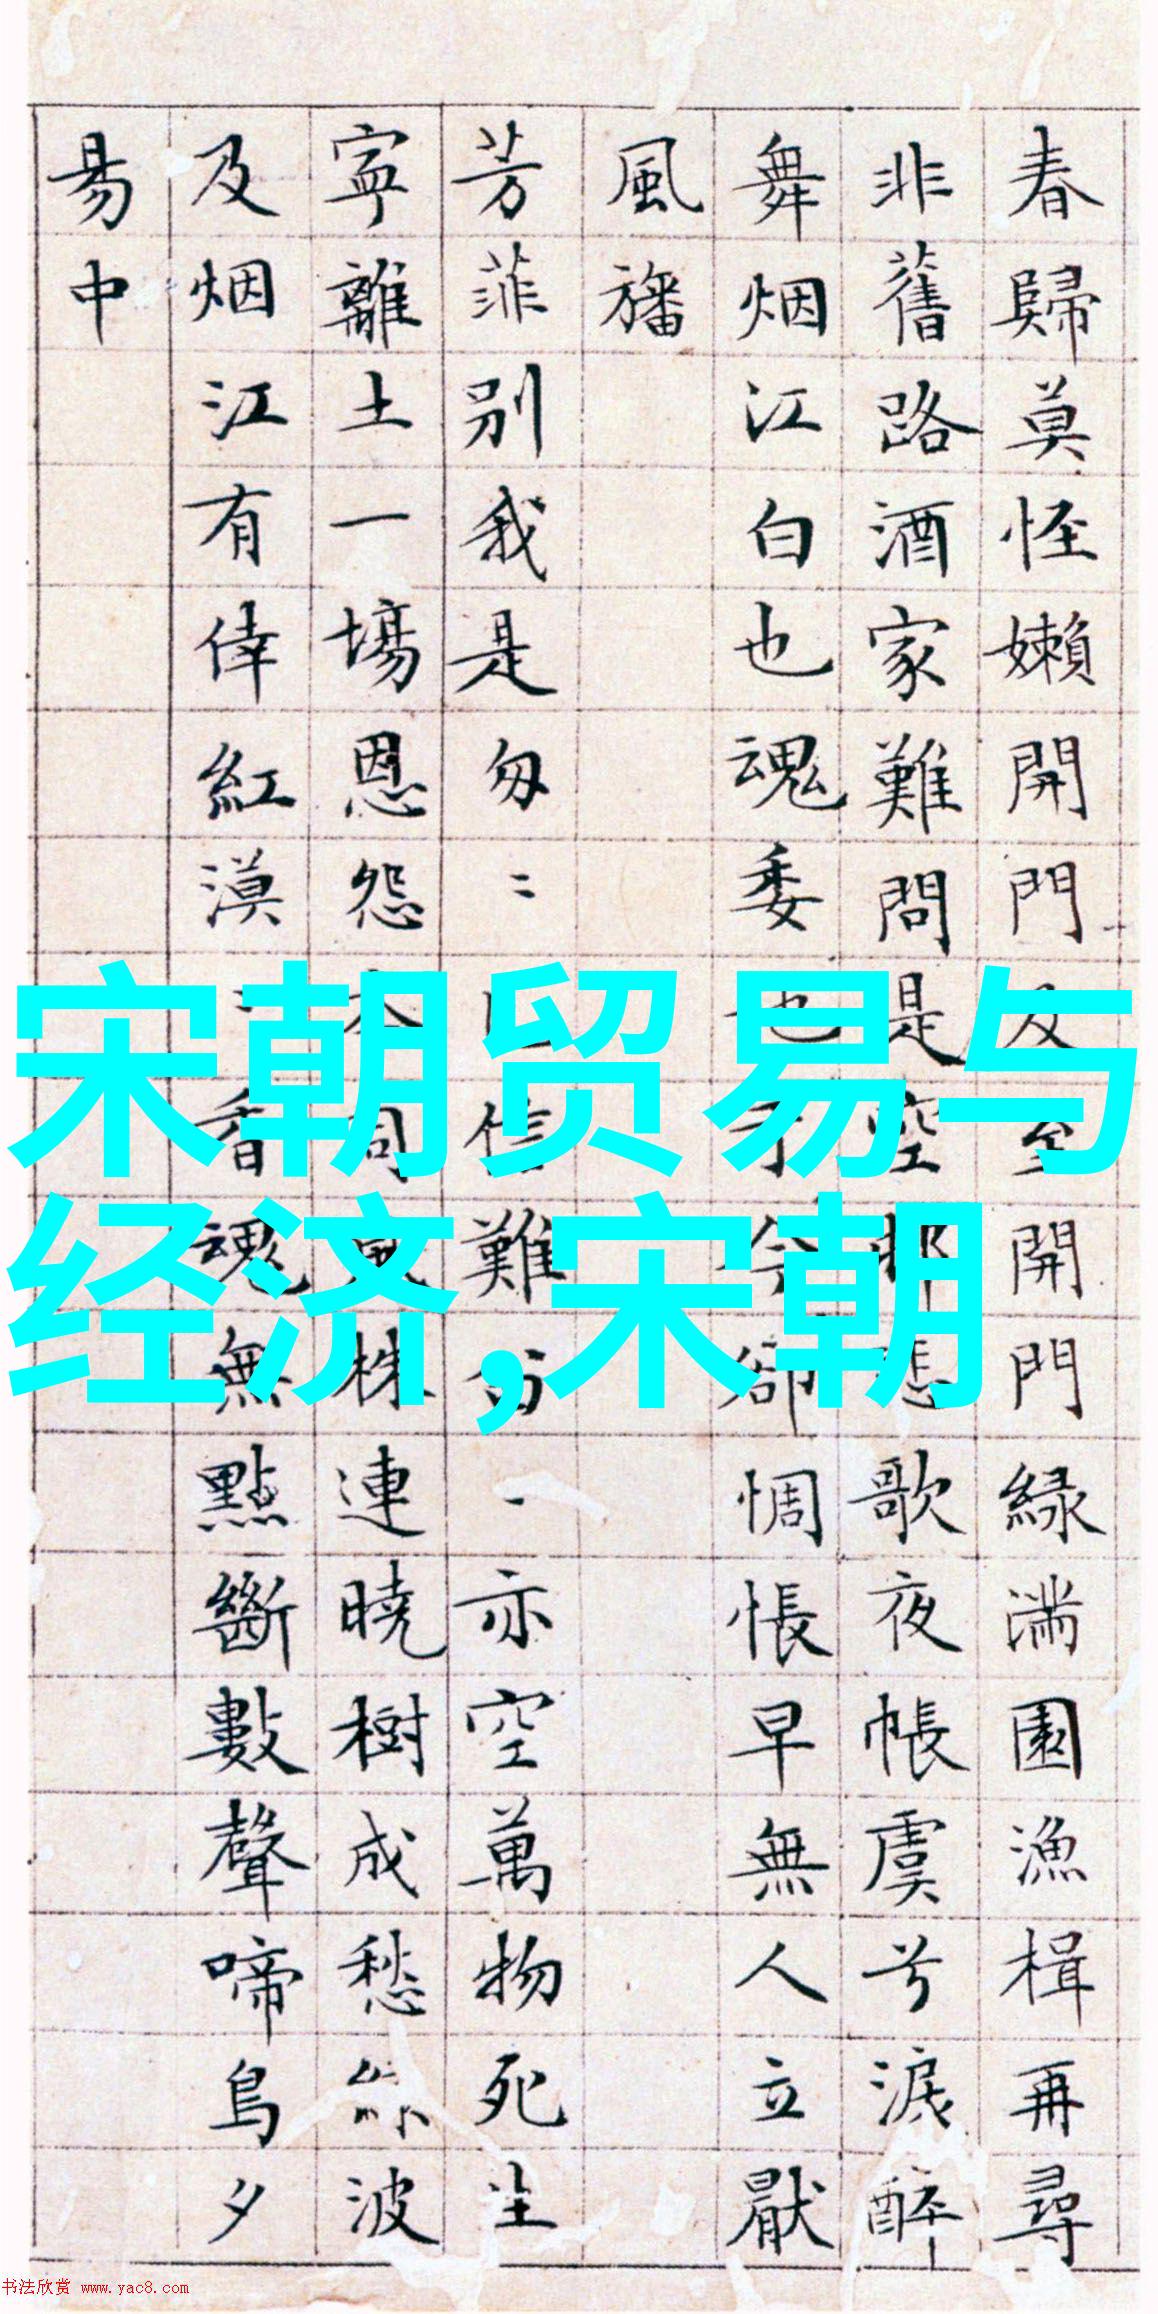 春歸莫怪嬾開門及至開門緑滿園漁楫再尋
非舊路酒家難問是空邨悲歌夜帳虞兮淚醉
舞烟江白也魂委也于今卻惆悵早無人立厭
風旛
芳菲別我是匆〻
難 一亦空萬物死生
寧離土一場恩怨本同
株連曉樹成愁 波
及烟江有倖紅漠
香魂無點斷數聲啼鳥夕
易中
宋朝贸易与
经济,宋朝
书法欣赏 www.yac8.com